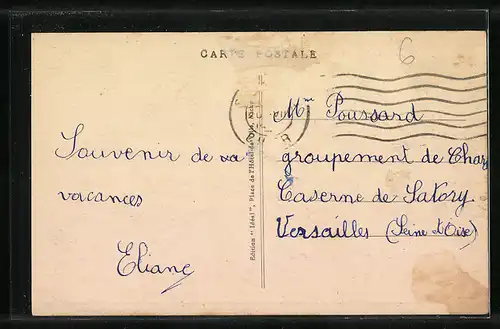 CARTE POSTALE
6
Souvenir de
vacances
Eliane
Edition "Idéal", Place de l'Hôtel-de-Ville,
Mme Poussard
groupement de Char
Caserne de Satory
Versailles (Seine et Oise)